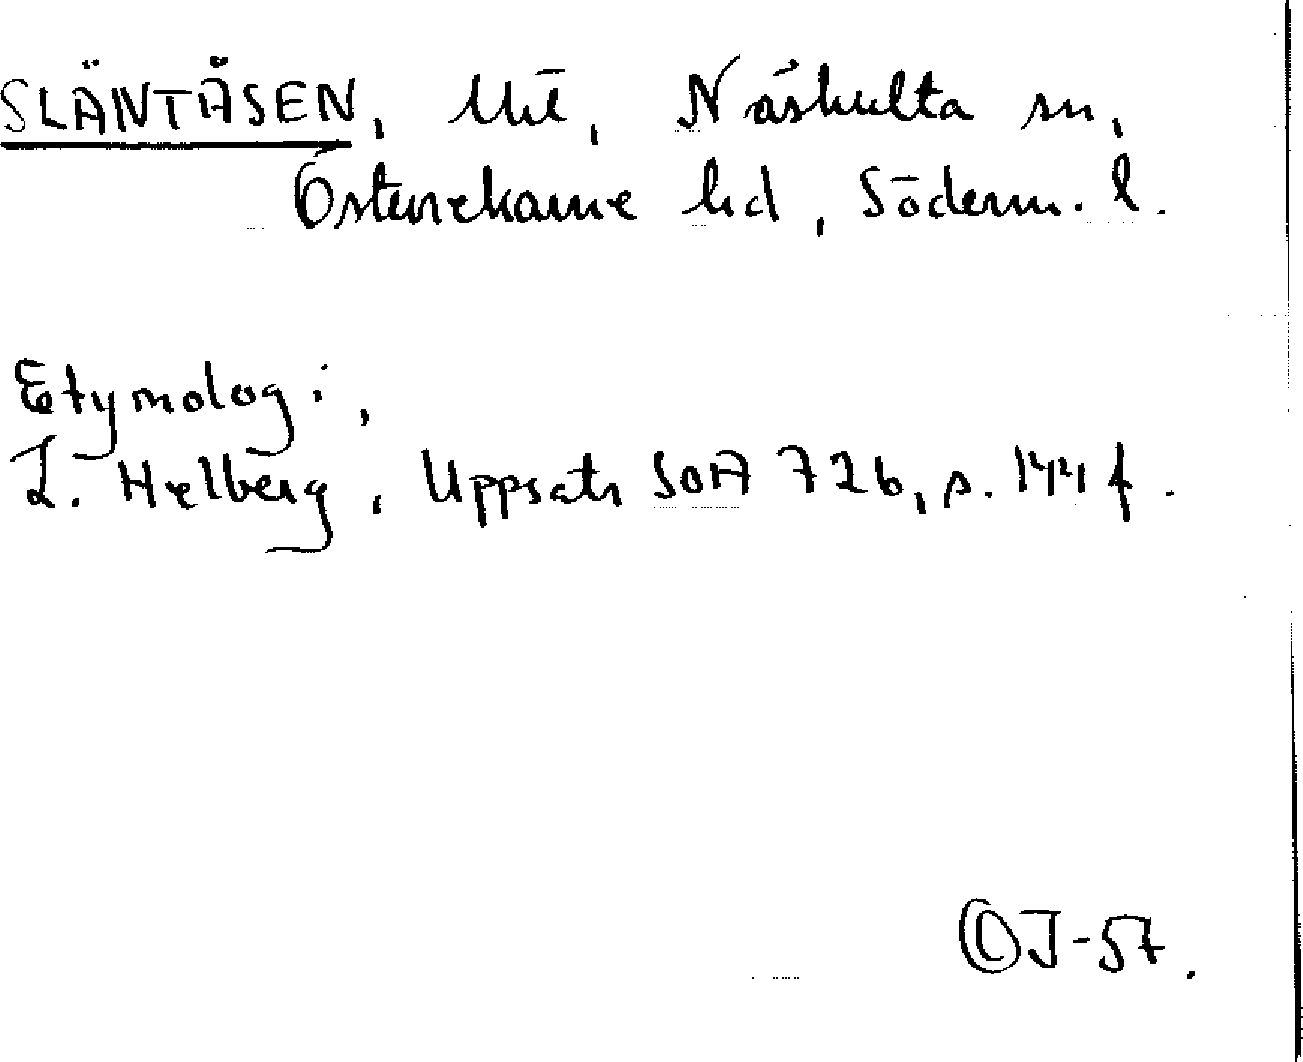 SLÄNTÅSEN, Näshulta sn,
Österrekarne hd, Söderm. l.
Etymologi,
L. Hellberg, Uppsats SOA 726, s. 144 f.
OJ-57.